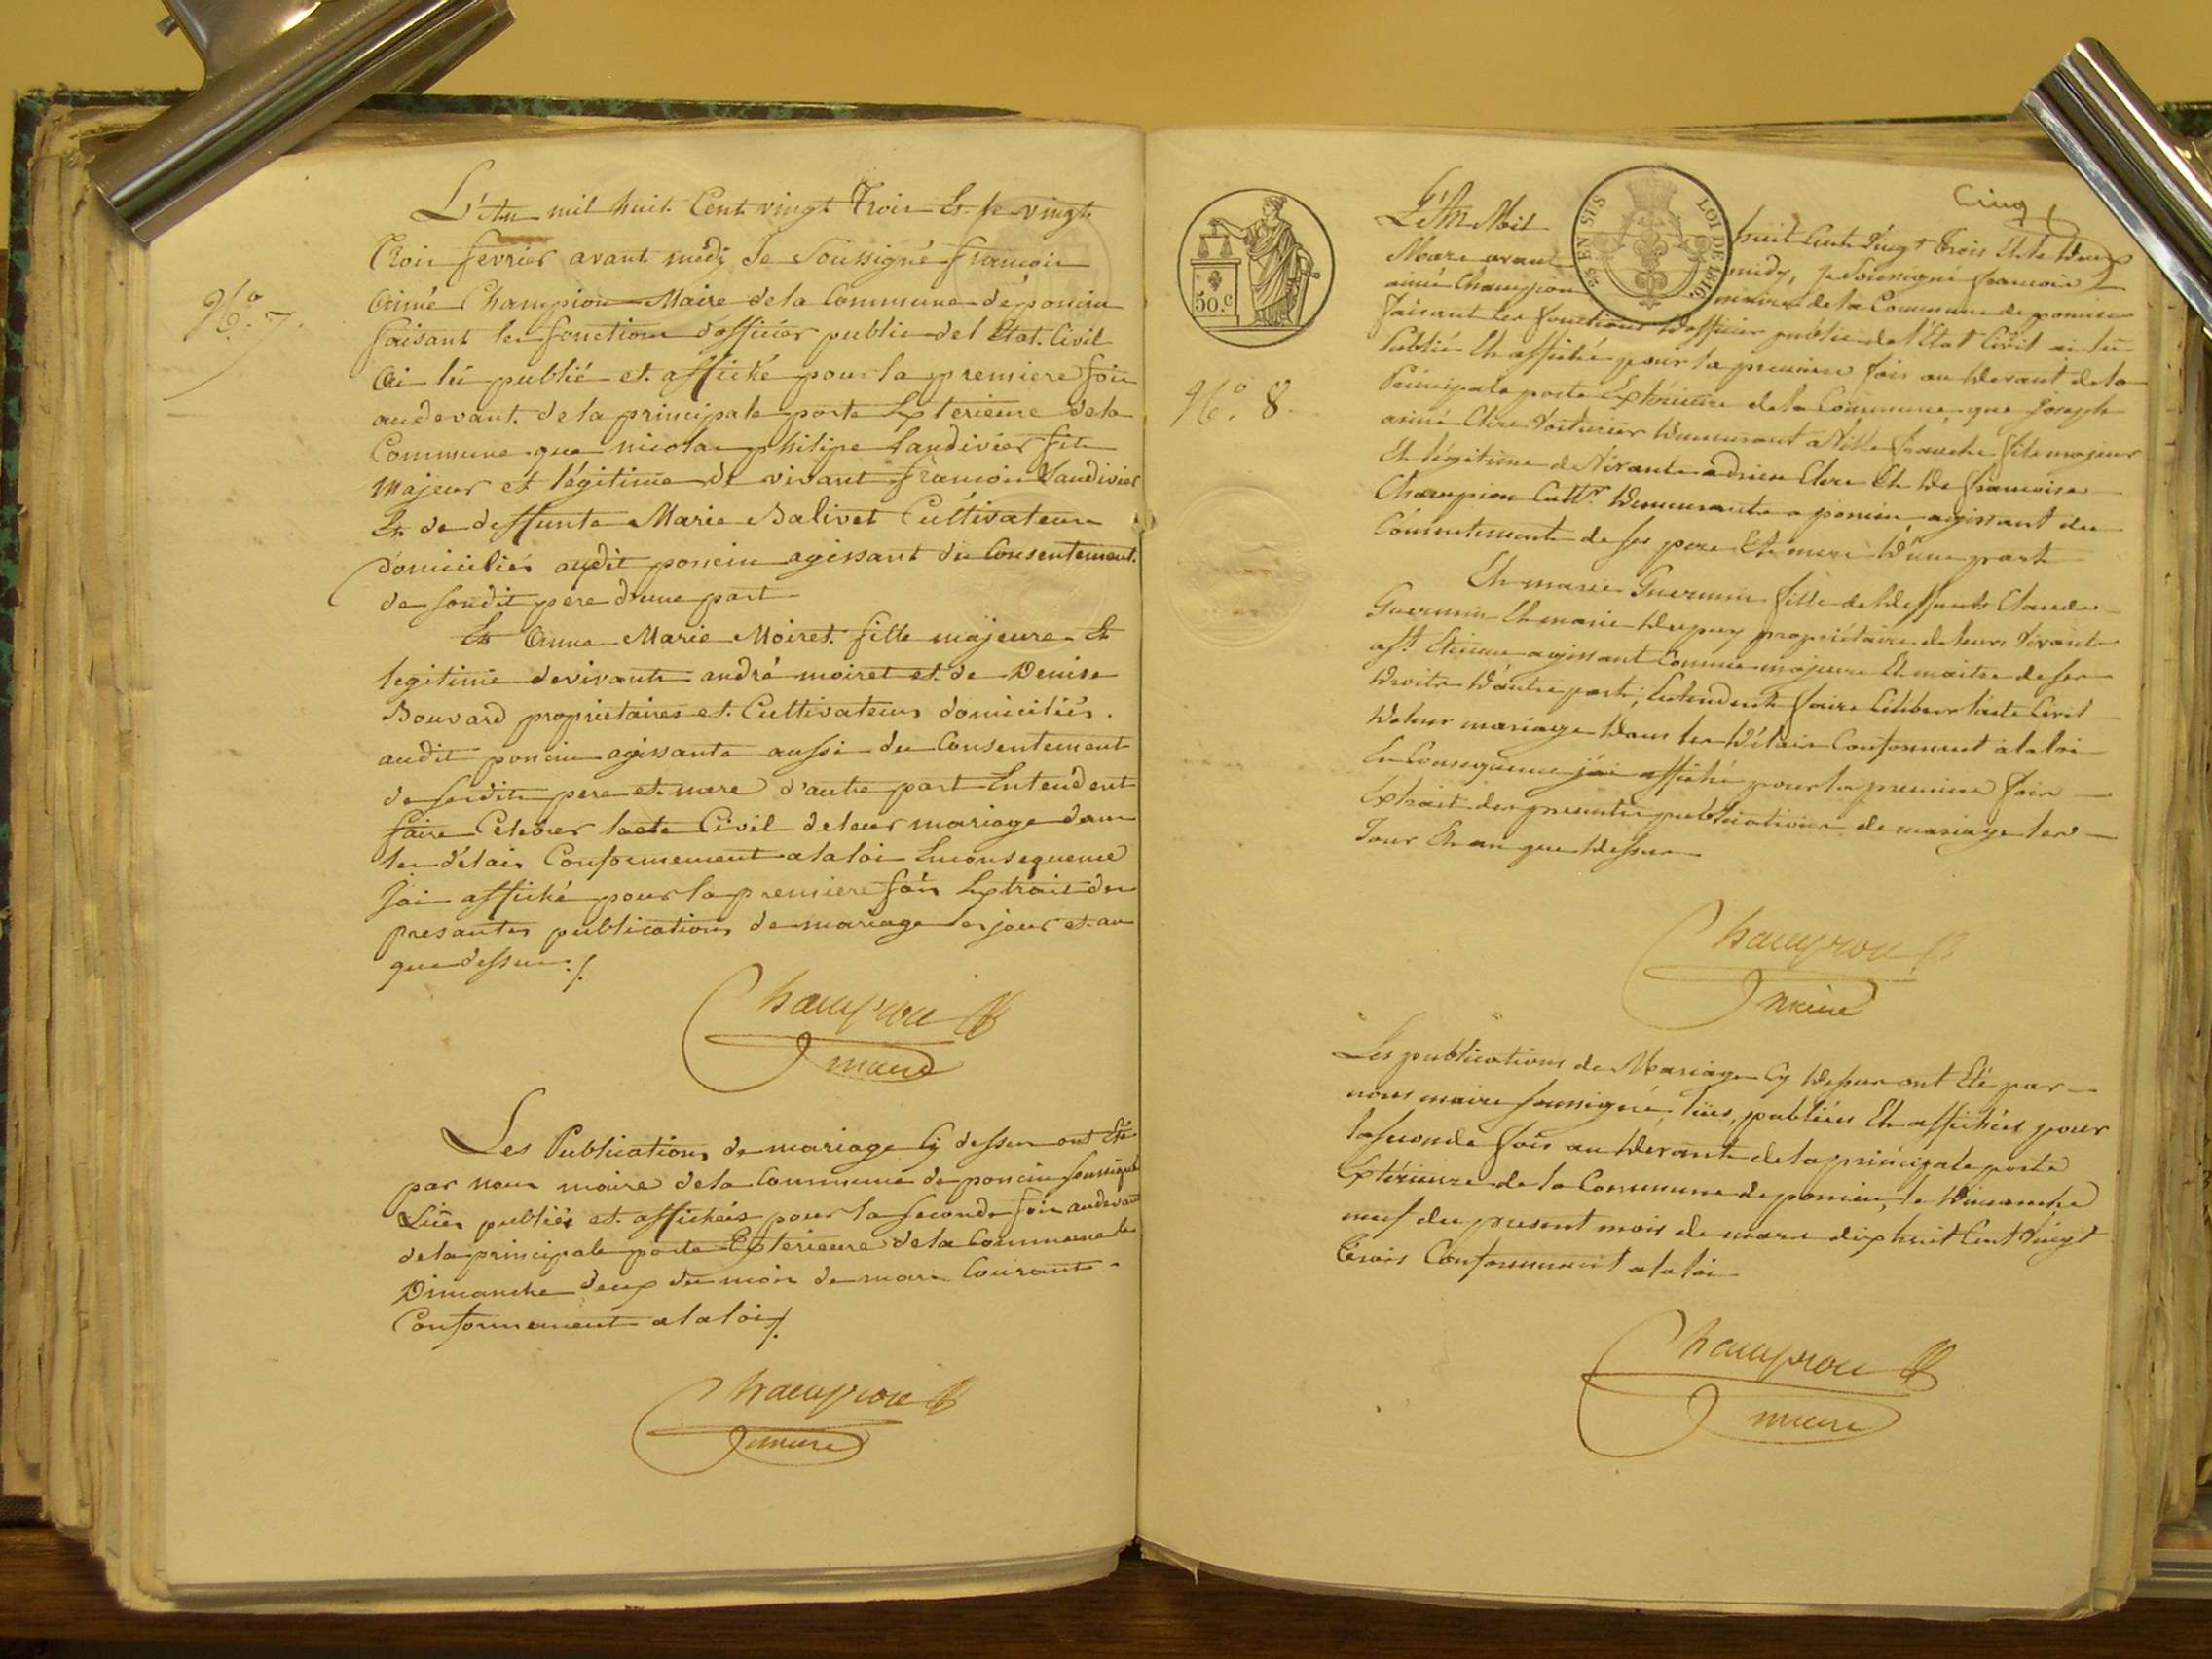 N.o 7.
L'An mil huit Cent vingt Trois Et le vingt
Trois fevrier avant midy Je Soussigné francois
Aimé Champion Maire dela Commune de poncin
faisant les fonctions d'officier public del Etat Civil
Ai lu publié et affiché pour la premiere fois
audevant dela principale porte Exterieure dela
Commune que nicolas philipe Vaudivier fils
Majeur et légitime de vivant francois Vaudivier
Et de deffunte Marie Balivet Cultivateurs
domiciliés audit poncin agissant du Consentement
de sondit pere d'une part
Et Anne Marie Moiret fille majeure Et
legitime devivants andré moiret et de Denise
Bouvard propriétaires et Cultivateurs domiciliés
audit poncin agissante aussi du Consentement
de sesdits pere et mere d'autre part Entendent
faire Celebrer lacte Civil deleur mariage dans
les délais Conformement alaloi Enconsequence
Jai affiché pour la premiere fois Extrait des
presantes publications de mariage les jour et an
que dessus ./.
Champion
maire
Les Publications de mariage Cy dessus ont Eté
par nous maire dela Commune de poncin soussigné
Lües publiés et affichéis pour la seconde fois audevant
dela principale porte Exterieure dela Commune le
Dimanche deux du mois de mars Courant
Conformement alaloi ./.
Champion
maire
Cinq
50.c
25 EN SUS LOI DE 1816.
N.o 8.
L'An Mil huit Cent Vingt Trois Et le Deux
Mars avant midy, Je Soussigné francois
aimé Champion maire de la Commune de poncin
faisant les fonctions D'officier public de l'Etat Civil ai lu
Publié Et affiché pour la premiere fois au Devant de la
Principale porte Extérieure dela Commune, que Joseph
aimé Clere Voiturier Demeurant a Ville franche fils majeur
Et légitime de Vivants adrien Clere Et De francoise
Champion Cultr. Demeurants a poncin, agissant du
Consentement de ses pere Et mere D'une part
Et marie Guermin fille de Deffunts Claude
Guermin Et marie Dupuy propriétaires de leurs Vivants
a St. Etienne agissant Comme majeure Et maitre de ses
Droits D'autre part; Entendent faire Célébrer lacte Civil
De leur mariage Dans les Délais Conforment a la loi
En Consequence j'ai affiché pour la premiere fois
Extrait des presentes publications de mariage les
Jour Et an que Dessus
Champion
maire
Les publications de Mariage Cy Dessus ont Eté par
nous maire soussigné, lües, publiées Et affichées pour
la seconde fois au Devant de la principale porte
Extérieure de la Commune de poncin, le Dimanche
neuf du present mois de mars dix huit Cent Vingt
Trois Conformement a la loi
Champion
maire